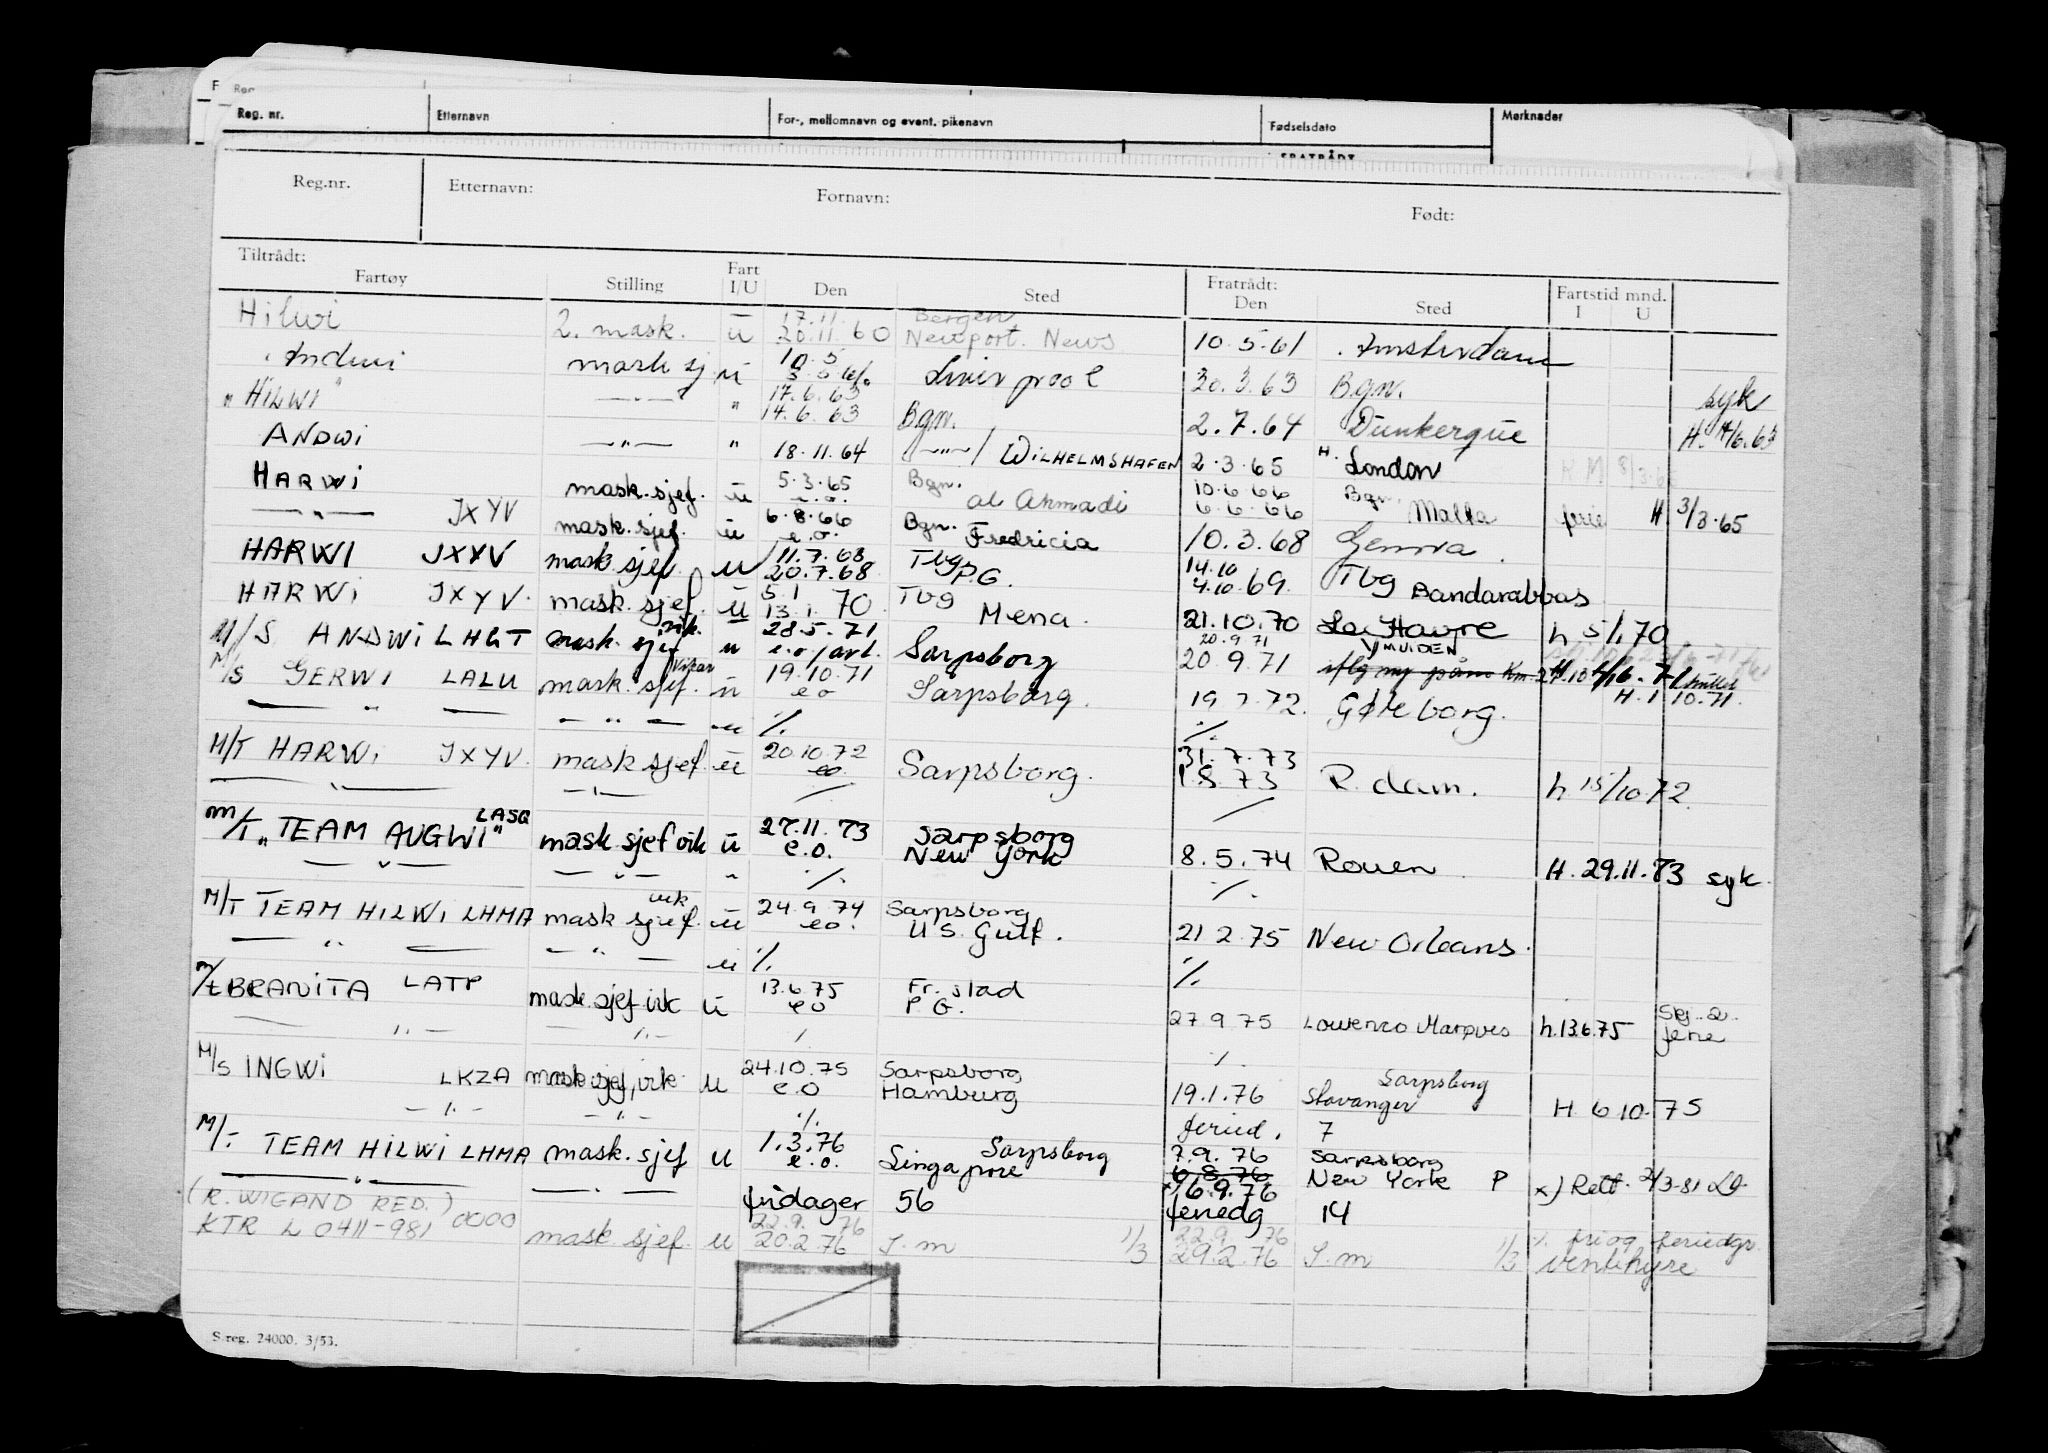 Reg. nr. Etternavn For-, mellomnavn og event. pikenavn Fødselsdato Merknader
FRATRÅDT
Reg.nr. Etternavn: Fornavn: Født:
Tiltrådt: Fartøy Stilling Fart I/U Den Sted Fratrådt: Den Sted Fartstid mnd. I U
Hilwi 2. mask. u 17.11 20.11.60 Bergen Newport. News 10.5.61 Amsterdam
Andwi mask sj u 10.5 Liverpool 20.3.63 Bgn. syk
" HILWI " —"— " 17.6.63 14.6.63 Bgn. 2.7.64 Dunkerque H. 14/6.63
ANDWI —"— " 18.11.64 /—"—/ WILHELMSHAFEN 2.3.65 H. London
HARWI mask.sjef. u 5.3.65 e.o. Bgn. al Ahmadi 10.6.66 6.6.66 Bgn. Malta ferie H 3/3.65
—"— JXYV mask.sjef. u 6.8.66 e.o. Bgn. Fredricia 10.3.68 Genova
HARWI JXYV mask.sjef. u 11.7.68 20.7.68 Tbg P.G. 14.10 4.10.69. Tbg Bandarabbas
HARWI JXYV. mask.sjef. u 5.1 13.1.70 Tbg Mena. 21.10.70 Le Havre h 5/1.70
M/S ANDWI LHGT mask. sjef vik. u 28.5.71 e.o/avt. Sarpsborg 20.9.71 20.9.71 YMUIDEN
M/S GERWI LALU mask. sjef. vikar u 19.10.71 eo Sarpsborg. 19.7.72. Gøteborg. H. 1 10.71.
— " — — " — u ./. ./.
M/T HARWI JXYV. mask sjef. u 20.10.72 eo. Sarpsborg. 31.7.73 1.8.73 R.dam. h. 15/10.72.
— " — —"— / /
M/T "TEAM AUGWI" LASQ mask sjef vik u 27.11.73 e.o. Sarpsborg New York 8.5.74 Rouen H. 29.11.73 syk.
— " — — " — " ./. ./.
M/T TEAM HILWI LHMA mask sjef. vik u 24.9.74 eo. Sarpsborg U S. Gulf. 21 2.75 New Orleans.
— " — — " — u ./. ./.
M/T BRANITA LATP mask sjef vik u 13.6.75 eo Fr.stad P G. 27 9.75 Lourenco Marques h.13.6.75 ferie
— " — — " — / ./.
M/S INGWI LKZA mask sjef, vik u 24.10.75 e.o Sarpsborg Hamburg 19.1.76 Sarpsborg Stavanger H 6 10.75
— " — — " — ./. feried. 7
M/T TEAM HILWI LHMA mask.sjef u 1.3.76 e.o. Sarpsborg Singapore 7.9.76 6.8.76 x) 6.9.76 Sarpsborg New York P x) Rett. 2/3-81
— " — — " — fridager 56 feriedg 14
(R. WIGAND RED.) KTR L 0411-981 0000 mask sjef. u 22.9.76 20.2.76 S.m 1/3 22.9.76 29.2.76 S.m 1/3 fri og feriedgr. ventehyre
S.reg. 24000. 3/53.